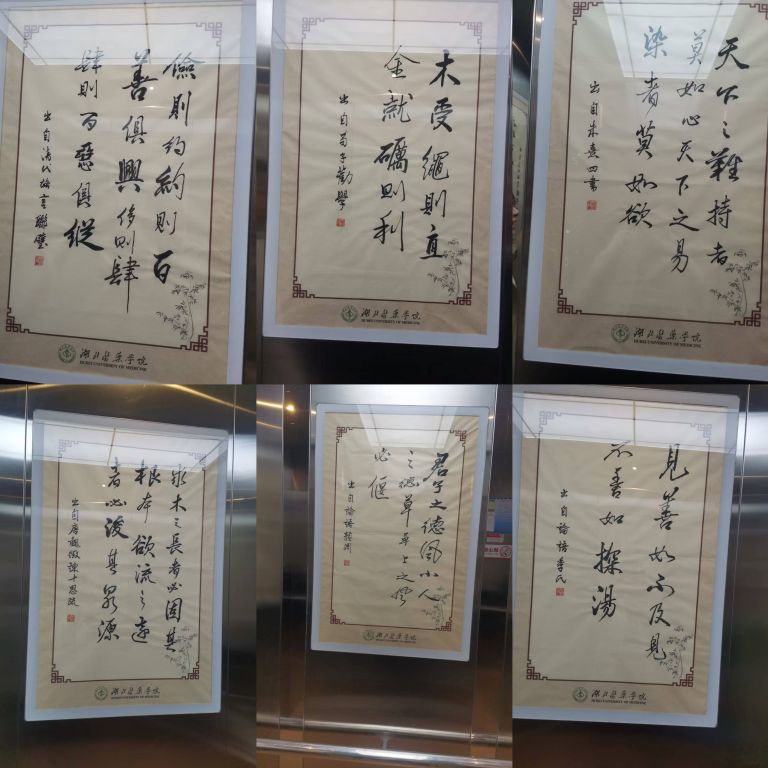 儉則約約則百
善俱興侈則肆
肆則百惡俱縱
出自清代格言聯璧
湖北醫藥學院
HUBEI UNIVERSITY OF MEDICINE
木受繩則直
金就礪則利
出自荀子勸學
湖北醫藥學院
HUBEI UNIVERSITY OF MEDICINE
天下之難持者
莫如心天下之易
染者莫如欲
出自朱熹四書
湖北醫藥學院
HUBEI UNIVERSITY OF MEDICINE
求木之長者必固其
根本欲流之遠
者必浚其泉源
出自唐魏徵諫十思疏
湖北醫藥學院
HUBEI UNIVERSITY OF MEDICINE
君子之德風小人
之德草草上之風
必偃
出自論語顏淵
湖北醫藥學院
HUBEI UNIVERSITY OF MEDICINE
見善如不及見
不善如探湯
出自論語季氏
湖北醫藥學院
HUBEI UNIVERSITY OF MEDICINE